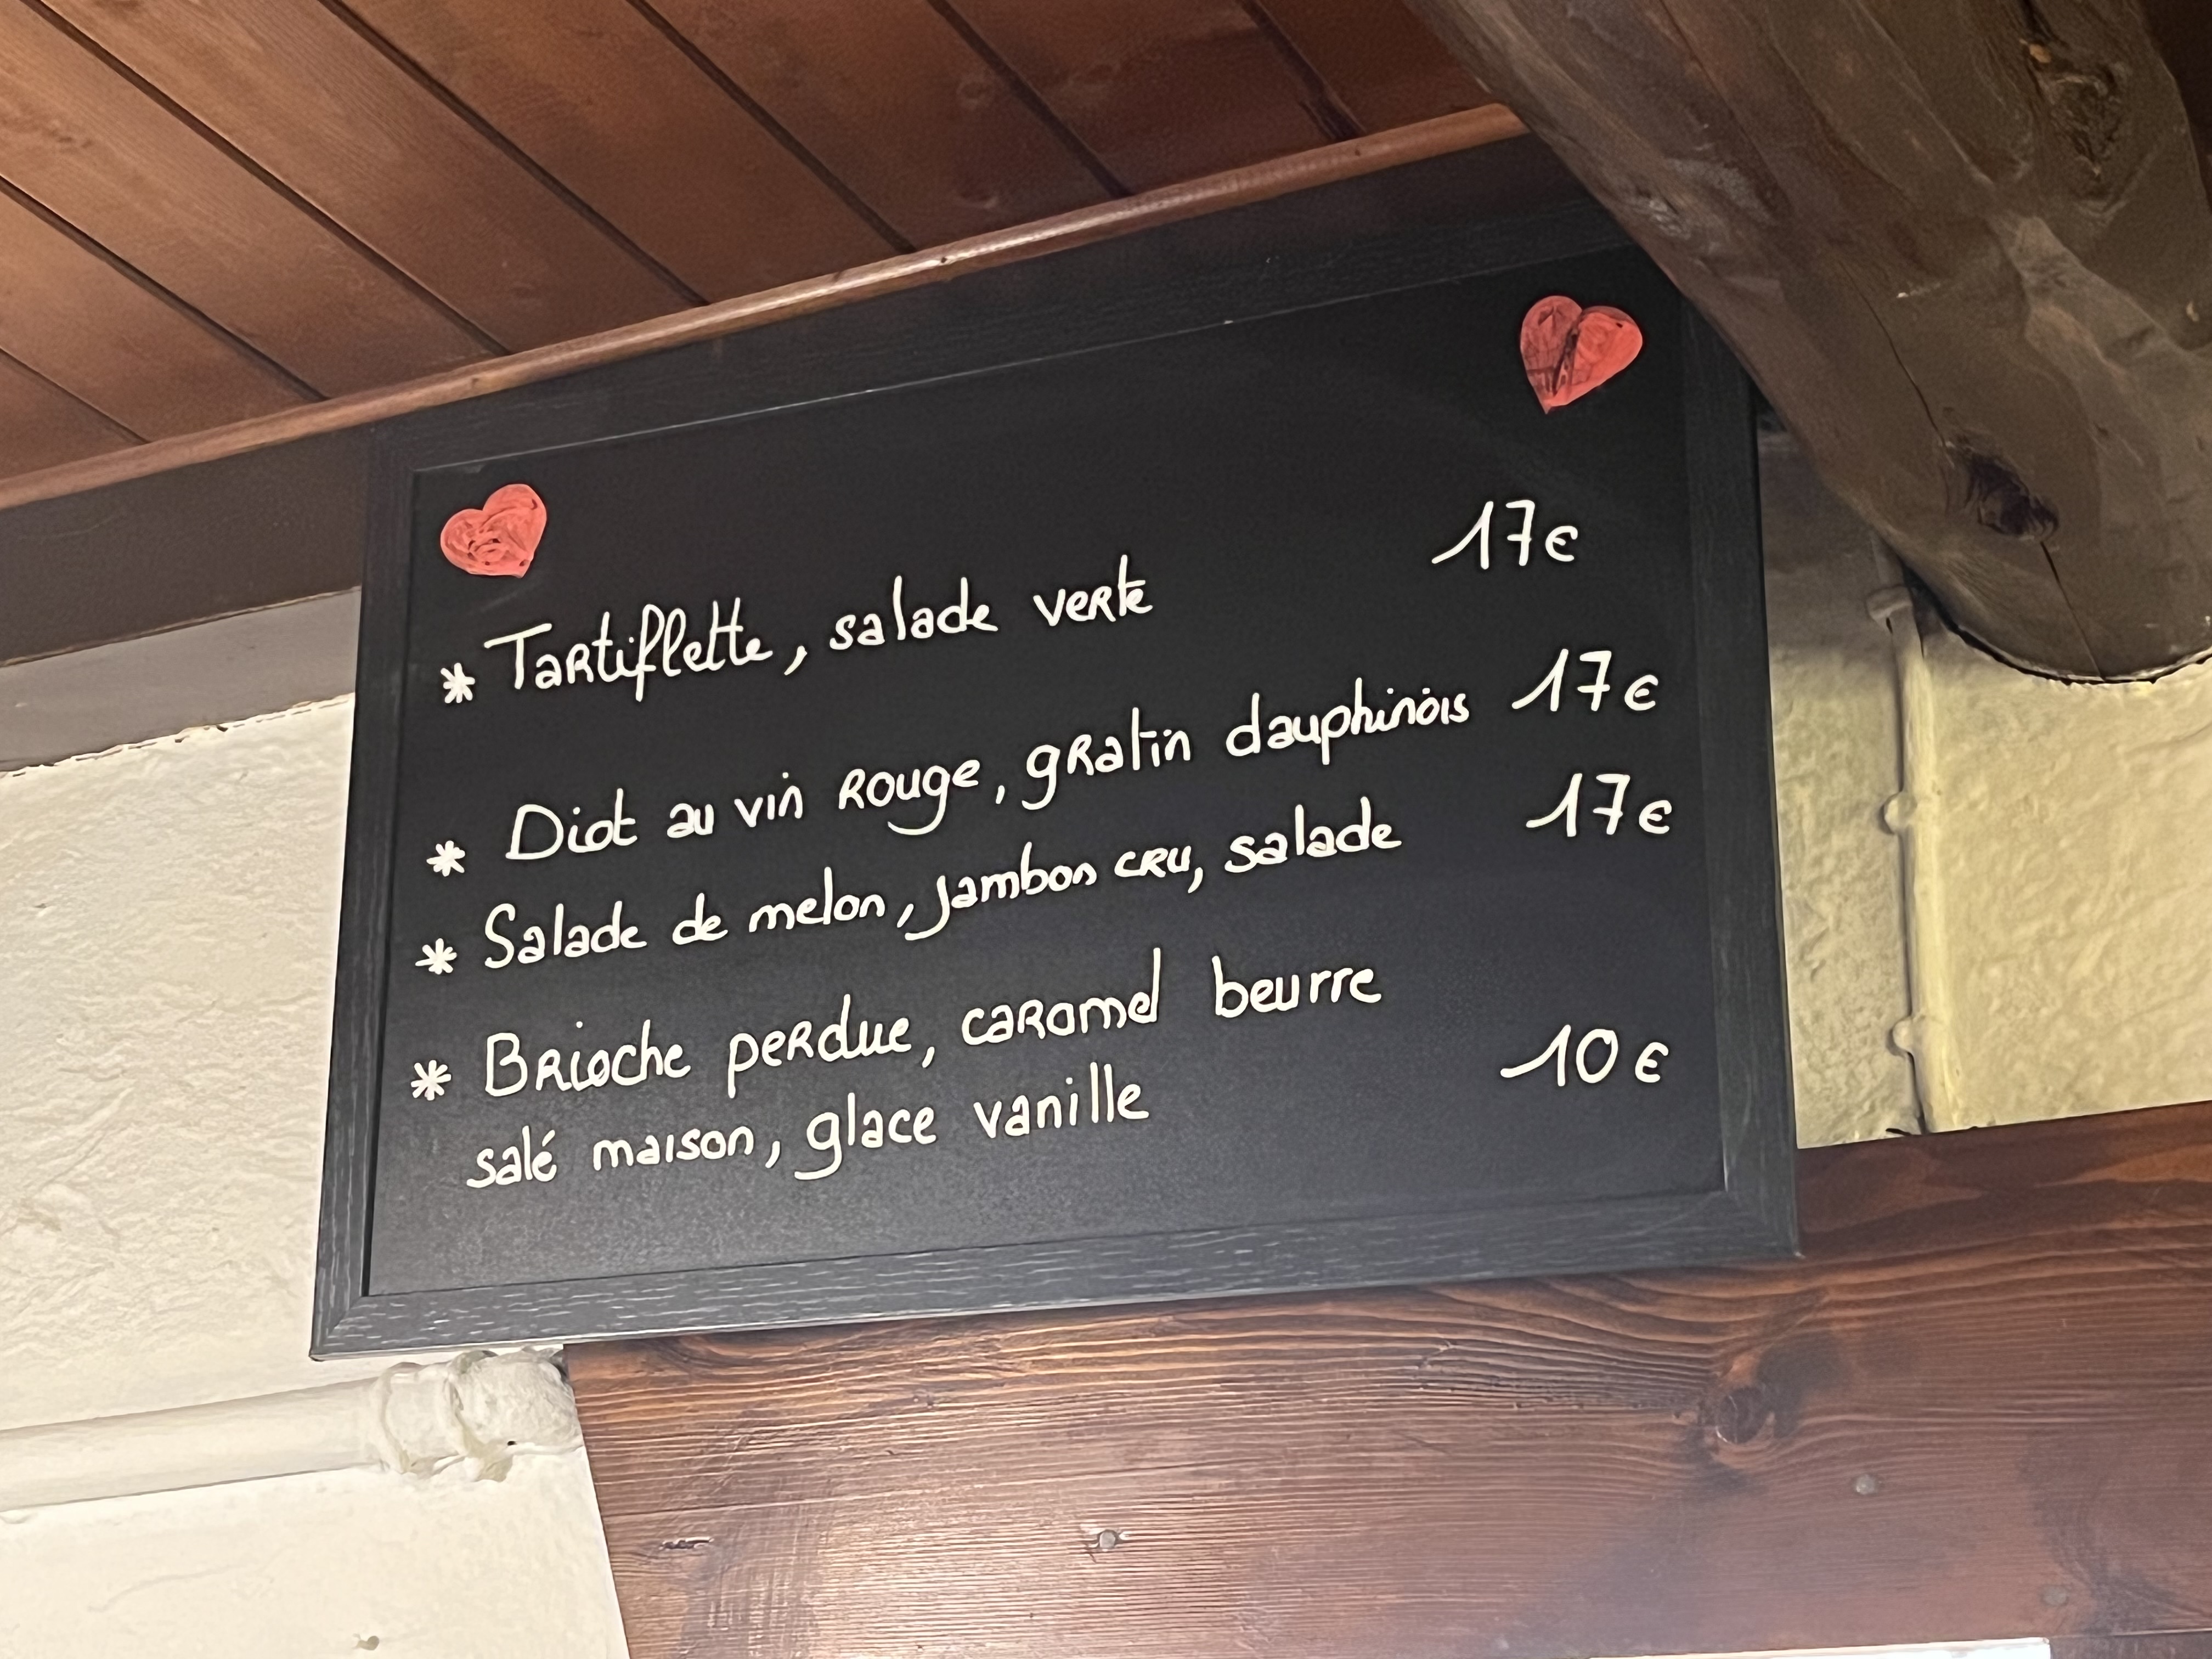 * Tartiflette, salade verte 17€
* Diot au vin rouge, gratin dauphinois 17€
* Salade de melon, jambon cru, salade 17€
* Brioche perdue, caramel beurre
salé maison, glace vanille 10€